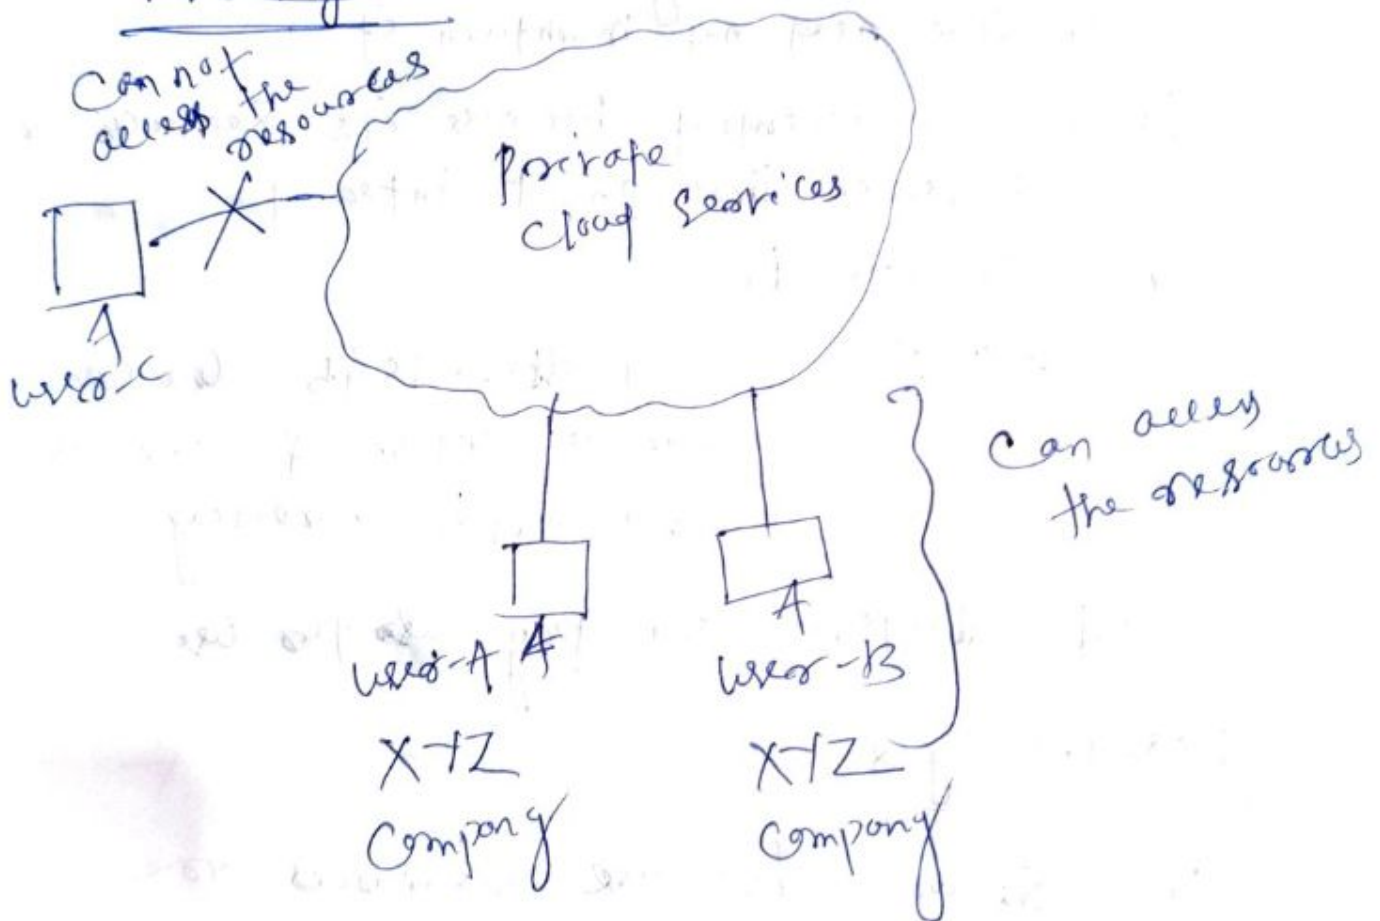 Can not
access the
resources
Private
Cloud Services
user-C
Can access
the resources
user-A
user-B
XYZ
XYZ
Company
Company